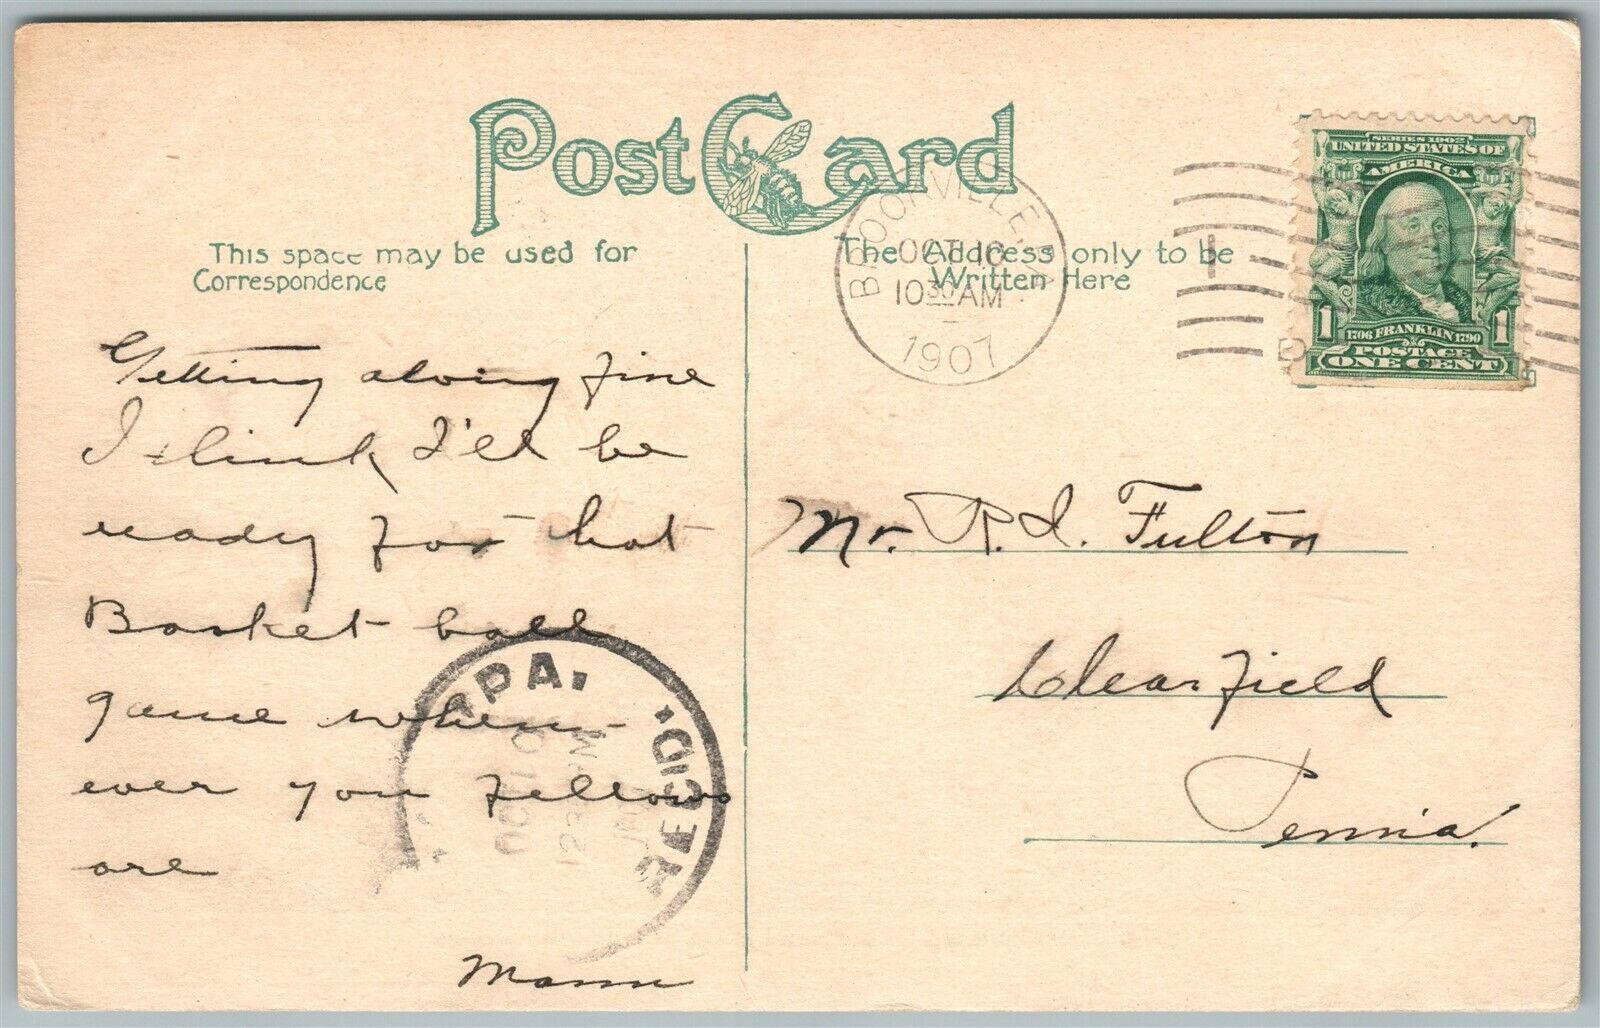 Post Card
This space may be used for
Correspondence
The Address only to be
Written Here
BROOKVILLE, PA
OCT 16
10 30 AM
1907
SERIES 1902
UNITED STATES OF
AMERICA
1706 FRANKLIN 1790
1 1
POSTAGE
ONE CENT
Getting along fine
I think I'll be
ready for hot
Basket ball
game when-
ever you fellows
are
Mann
PA.
REC'D.
OCT
Mr. R. I. Fulton
Clearfield
Penn'a.